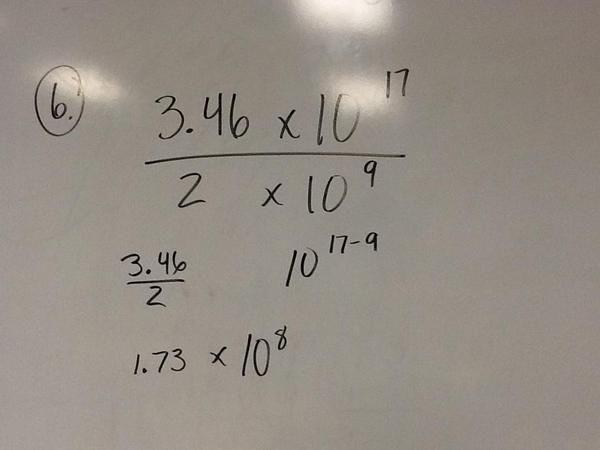 6.
3.46 x 10^17
2 x 10^9
3.46 10^17-9
2
1.73 x 10^8